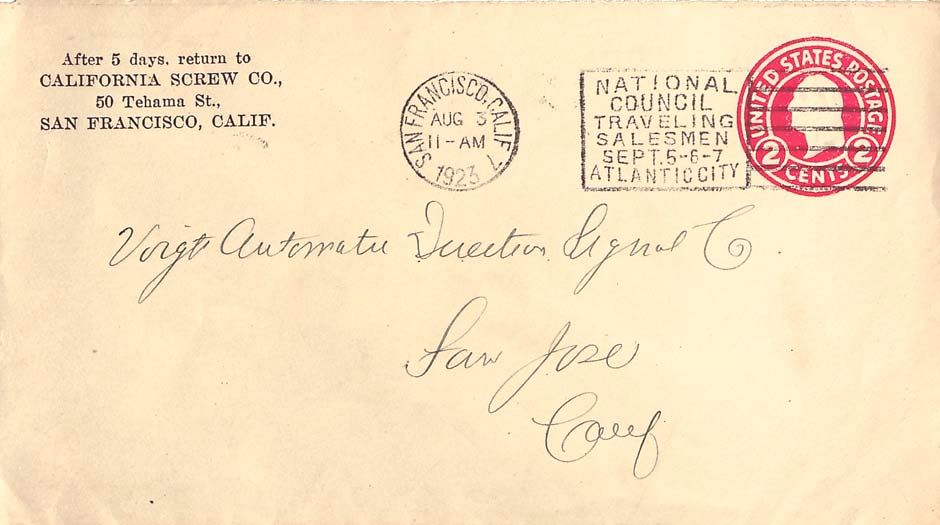 After 5 days, return to
CALIFORNIA SCREW CO.,
50 Tehama St.,
SAN FRANCISCO, CALIF.
SAN FRANCISCO, CALIF.
AUG 3
11-AM
1923
7
NATIONAL
COUNCIL
TRAVELING
SALESMEN
SEPT. 5-6-7
ATLANTIC CITY
UNITED STATES POSTAGE
2 CENTS 2
Voigt Automatic Direction Signal Co
San Jose
Calif